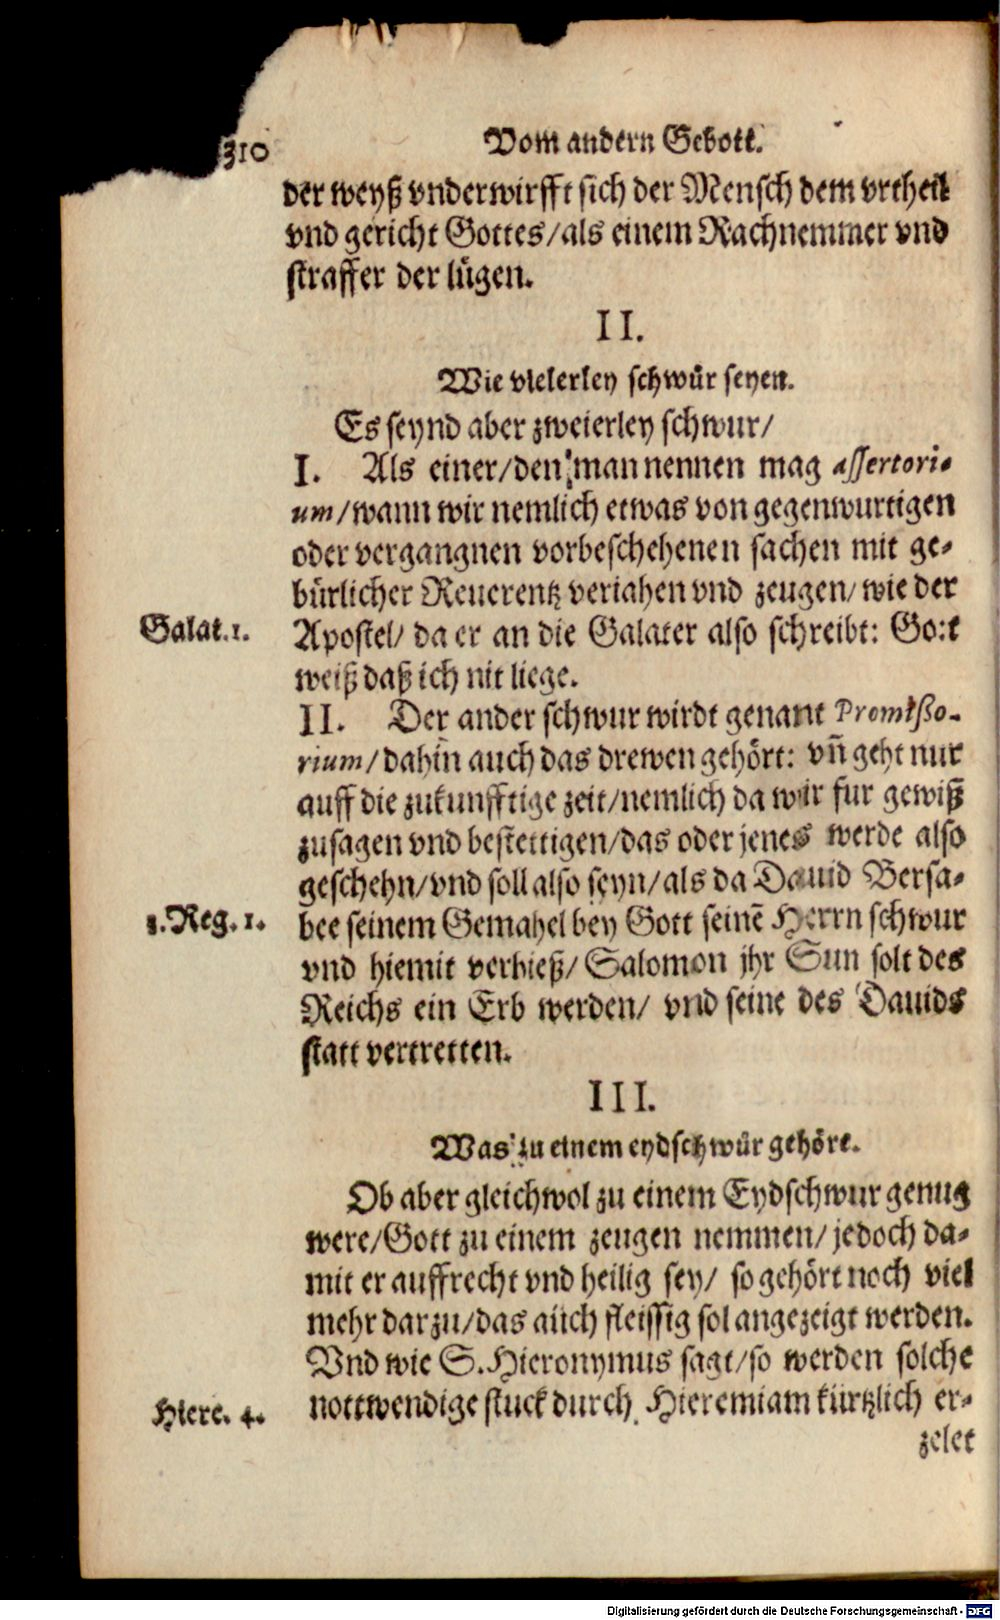 310 Vom andern Gebott.
der weyß vnderwirfft sich der Mensch dem vrtheil
vnd gericht Gottes/als einem Rachnemmer vnd
straffer der lügen.
II.
Wie vielerley schwůr seyen.
Es seynd aber zweierley schwur/
I. Als einer/den man nennen mag assertori-
um/wann wir nemlich etwas von gegenwurtigen
oder vergangnen vorbeschehenen sachen mit ge-
bürlicher Reuerentz veriahen vnd zeugen/wie der
Galat.1. Apostel/ da er an die Galater also schreibt: Gott
weiß daß ich nit liege.
II. Der ander schwur wirdt genant Promißo-
rium/dahin auch das drewen gehört: vñ geht nur
auff die zukunfftige zeit/nemlich da wir fur gewiß
zusagen vnd bestettigen/das oder jenes werde also
geschehn/vnd soll also seyn/als da Dauid Bersa-
3.Reg.1. bee seinem Gemahel bey Gott seinē Herrn schwur
vnd hiemit verhieß/ Salomon jhr Sun solt des
Reichs ein Erb werden/ vnd seine des Dauids
statt vertretten.
III.
Was zu einem eydschwůr gehöre.
Ob aber gleichwol zu einem Eydschwur genug
were/Gott zu einem zeugen nemmen/jedoch da-
mit er auffrecht vnd heilig sey/ so gehört noch viel
mehr darzu/das auch fleissig sol angezeigt werden.
Vnd wie S.Hieronymus sagt/so werden solche
Hiere. 4. nottwendige stuck durch Hieremiam kürtzlich er-
zelet
Digitalisierung gefördert durch die Deutsche Forschungsgemeinschaft - DFG